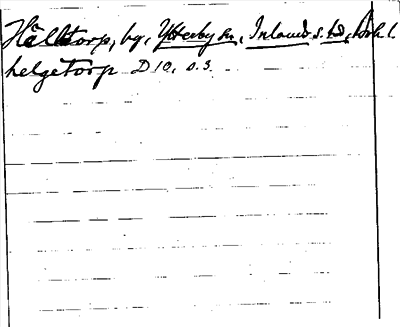 Hålltorp, by, Ytterby sn, Inlands s. hd, Boh. l.
helgetorp D 10, s. 3.